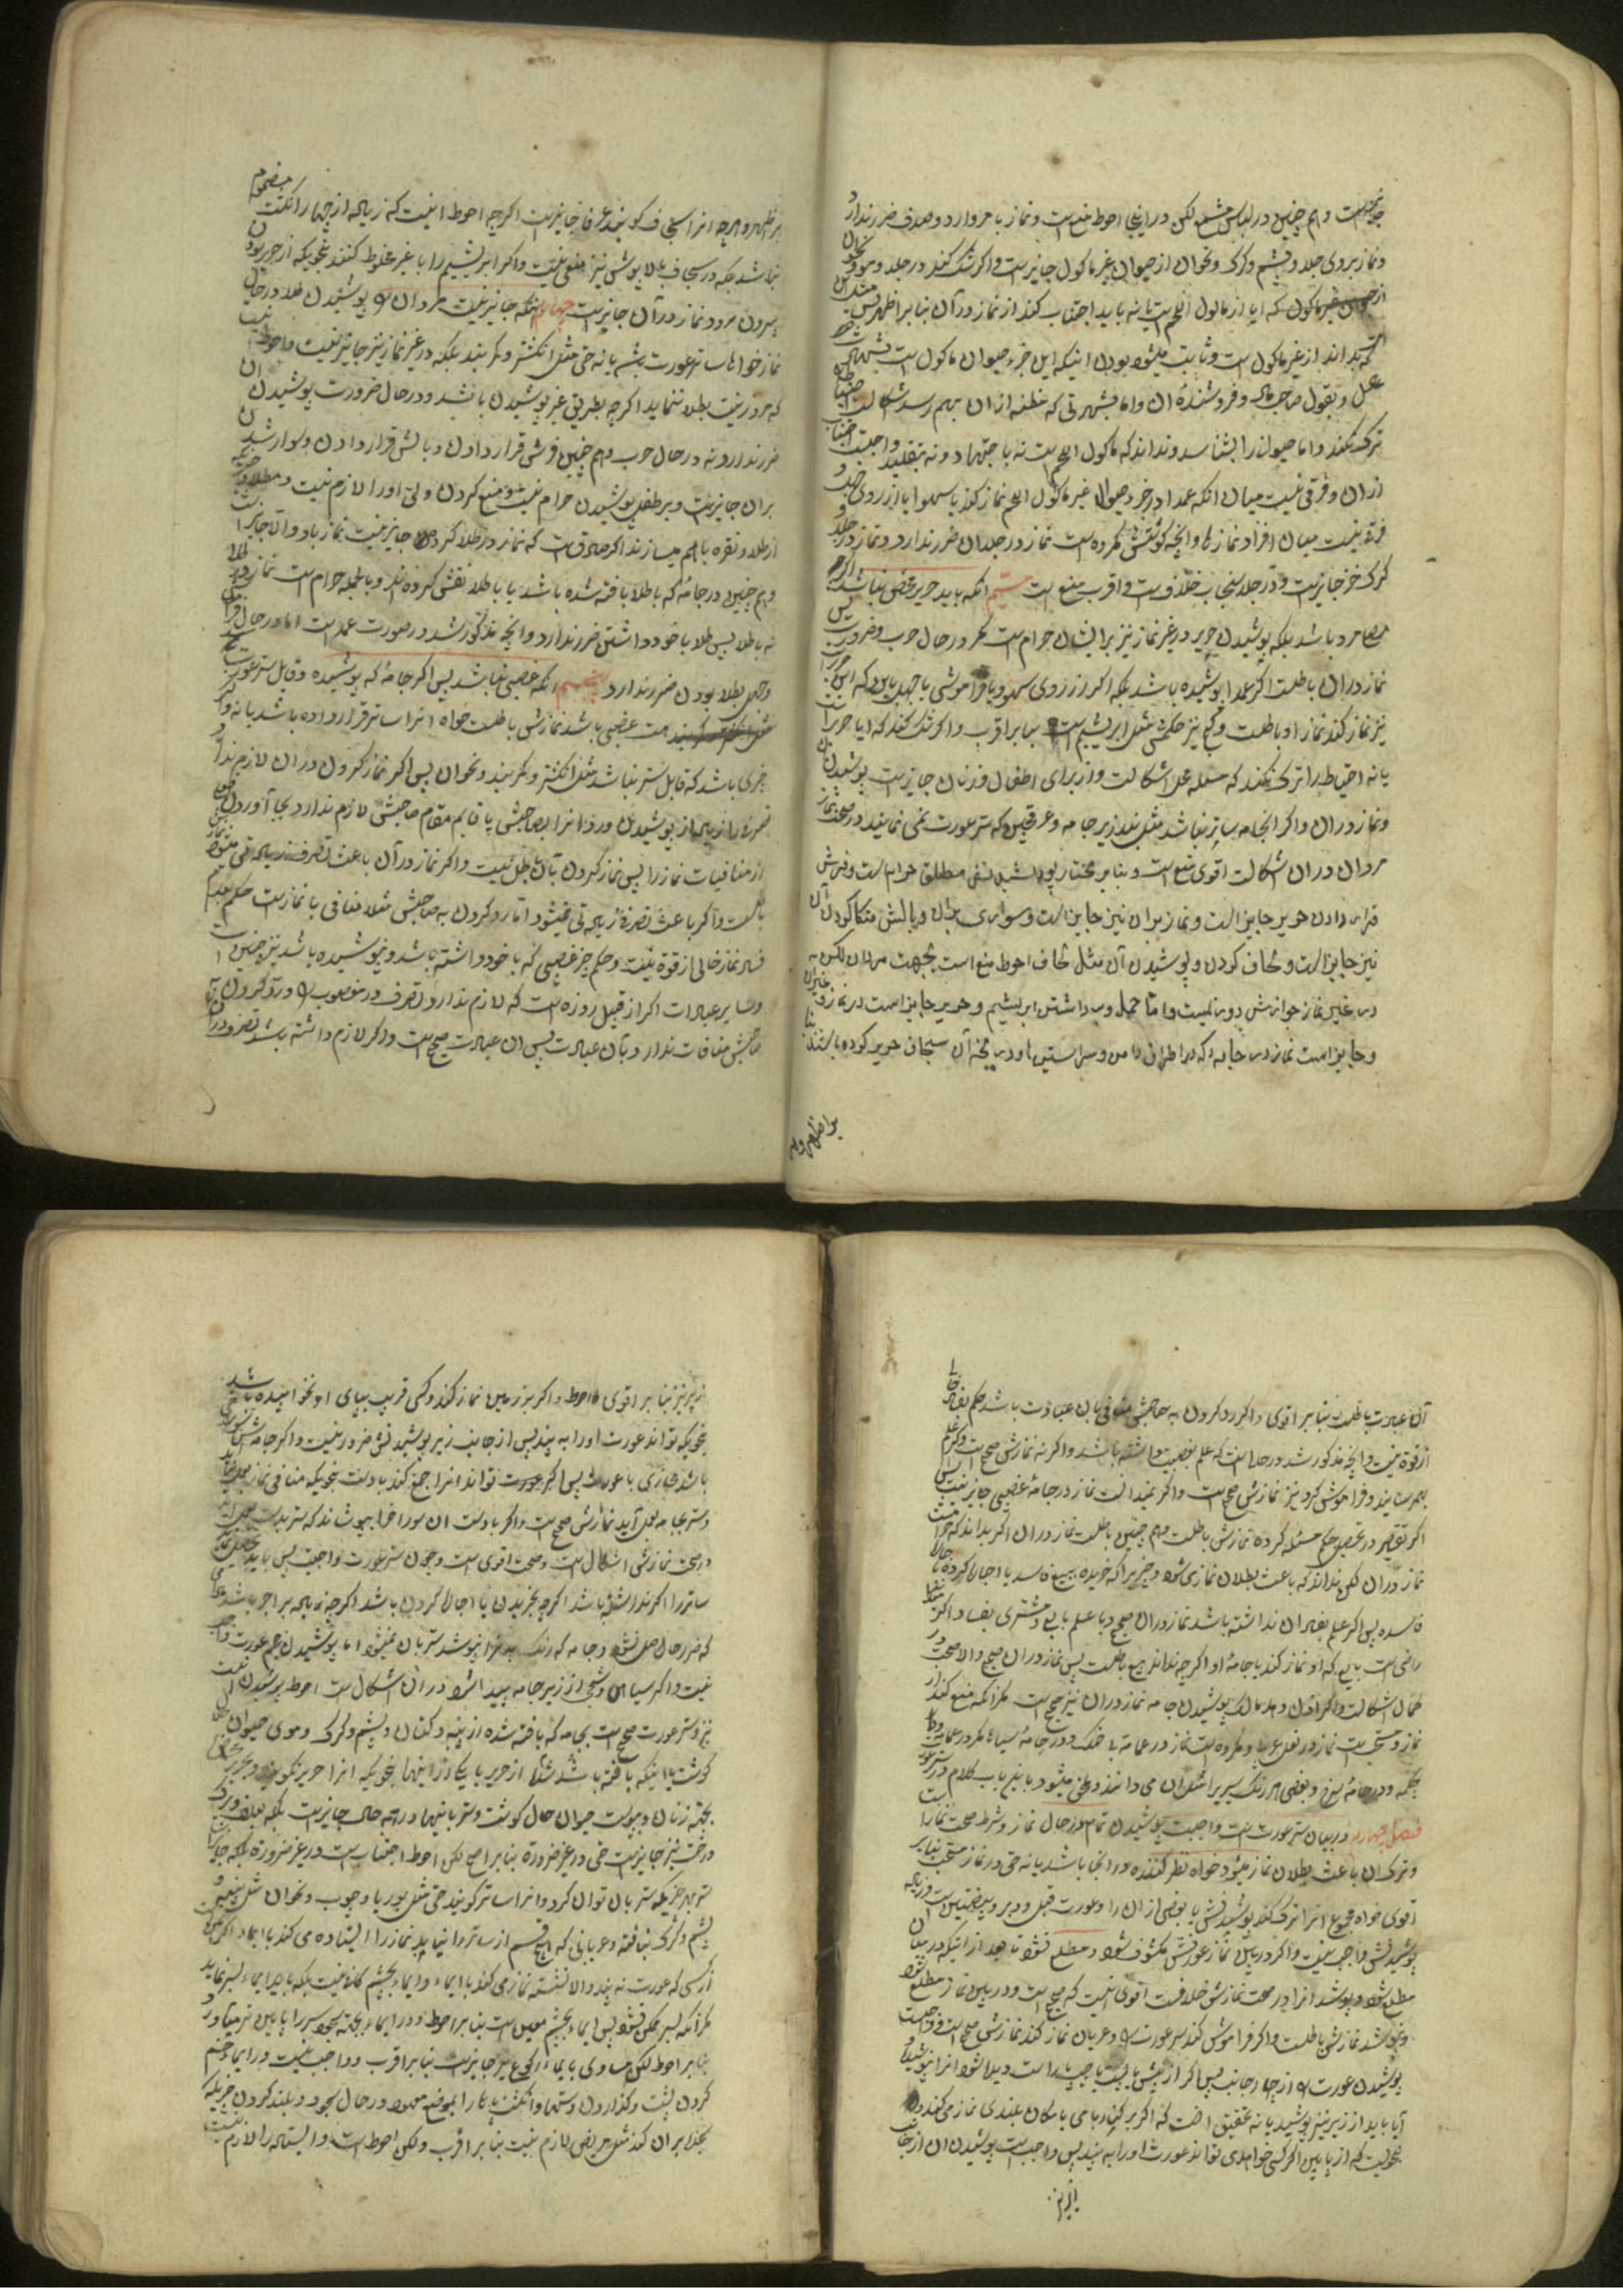 و هم چنین در لباس مشتبه لکن در اینجا احوط منع است و نماز با مروارید و صدف ضرر ندارد
و نماز بر روی جلد و پشم و کرک و نحو آن از حیوان غیر ماکول جایز است و اگر شک کند در جلد و مو و نحو آن
که ایا از ماکول اللحم است یا نه باید اجتناب کند از نماز در آن بنا بر اظهر پس
که بداند از غیر ماکول است و ثابت میشود بودن اینکه این جزء حیوان ماکول است بشهادت
عدل و بقول صاحب مال و فروشنده ان و اما بشهرتی که مظنه از ان بهم رسد اشکال است
ترک نکند و اما حیوان را بشناسد و نداند که ماکول اللحم است نه باجتهاد و نه بتقلید واجبست اجتناب
از ان و فرقی نیست میان انکه عمدا در جزء حیوان غیر ماکول اللحم نماز کند یا سهوا یا از روی جهل و
فرق نیست میان افراد نماز و آنچه کوشش مکروه است نماز در جلد ان ضرر ندارد و نماز در جلد و
کرک خز جایز است و در جلد سنجاب خلافست و اقرب منع است سیم آنکه باید حریر محض نباشد اگر
مصلی مرد باشد بلکه پوشیدن حریر در غیر نماز نیز بر ایشان حرام است مگر در حال حرب و ضرورت پس
نماز در ان باطلست اگر عمدا پوشیده باشد بلکه اگر از روی سهو و یا فراموشی یا جهل باین که این حریر است
نیز نماز کند نماز او باطلست و کج نیز حکمش مثل ابریشم است بنا بر اقرب و اگر شک کند که ایا حریر است
یا نه احتیاط را ترک نکند که مسئله محل اشکالست و از برای اطفال و زنان جایز است پوشیدن
و نماز در ان و اگر انجامه ساتر نباشد مثل بند زیر جامه و عرقچین که ستر عورت نمی نمایند در صحت نماز
مردان در ان اشکالست اقوی منع است و بنا بر مختار پوشیدنش مطلقا حرام است و فرش
قرار دادن حریر جایز است و نماز بر ان نیز جایز است و سواری بر ان و بالش متکا کردن آن
نیز جایز است و لحاف کردن و پوشیدن آن مثل لحاف احوط منع است بجهت مردان لکن
در غیر نماز جوازش دور نیست و اما حمل و برداشتن ابریشم و حریر جایز است در نماز و غیر آن
و جایز است نماز در جامه که در اطراف دامن و سر استین او در یخه آن سجاف حریر کرده باشند بنا
بر اظهر و هر
بر اظهر و هر چه انرا سجاف گویند عرفا جایز است اگر چه احوط اینست که زیاده از چهار انگشت مضموم
نباشد بلکه در سجاف بالاپوش نیز منعی نیست و اگر ابریشم را با غیر مخلوط کنند بنحویکه از حریر بودن
بیرون رود نماز در آن جایز است چهارم آنکه جایز نیست مردان را پوشیدن طلا در حال
نماز خواه ساتر عورت باشد یا نه حتی مثل انگشتر و کمربند بلکه در غیر نماز نیز جایز نیست و احوط
که مرد زینت بطلا ننماید اگر چه بطریق غیر پوشیدن باشد و در حال ضرورت پوشیدن ان
ضرر ندارد و نه در حال حرب و هم چنین فرش قرار دادن و بالش قرار دادن و سوار شدن
بر ان جایز است و بر طفل پوشیدن حرام نیست و منع کردن ولی او را لازم نیست و
از طلا و نقره باهم میسازند اگر صادق است که نماز در طلا کرده جایز نیست نماز باو و الا جایز
و هم چنین در جامه که با طلا بافته شده باشد یا با طلا نقش کرده اند و بالجمله حرام است نماز در طلا
نه با طلا پس طلا با خود داشتن ضرر ندارد و آنچه مذکور شد در صورت عمد است اما در حال فراموشی
و جهل بطلا بودن ضرر ندارد پنجم آنکه غصبی نباشد پس اگر جامه که پوشیده و قابل ستر عورت
است غصبی باشد نمازش باطلست خواه انرا ساتر قرار داده باشد یا نه و اگر
چیزی باشد که قابل ستر نباشد مثل انگشتر و کمربند و نحو ان پس اگر نماز کردن در ان لازم ندارد
تصرفی را زیاده از پوشیدنش و رد انرا بصاحبش یا قایم مقام صاحبش لازم ندارد بجا آوردن
از منافیات نماز را پس نماز کردن بآن باطل نیست و اگر نماز در آن باعث تصرف زیادتی میشود
باطلست و اگر باعث تصرف زیادتی نمیشود اما رد کردن به صاحبش مثلا منافی با نماز است حکم بعدم
فساد نماز خالی از قوة نیست و حکم چیز غصبی که با خود داشته باشد و نپوشیده باشد نیز چنین است
و سایر عبادات اگر از قبیل روزه است که لازم ندارد تصرف در مغصوب را و رد کردن آن
صاحبش منافات ندارد بآن عبادت پس ان عبادت صحیح است و اگر لازم داشته باشد تصرف در ان
آن عبادت باطلست بنا بر اقوی و اگر رد کردن به صاحبش منافی با ان عبادت باشد حکم بفساد خالی
از قوة نیست و آنچه مذکور شد در حالیست که علم بغصبیت داشته باشد و اگر نه نمازش صحیح است و اگر علم
بهم رساند و فراموش کرد نیز نمازش صحیح است و اگر نمیدانست نماز در جامه غصبی جایز نیست پس
اگر تقصیر در تحصیل حکم مسئله کرده نمازش باطلست و هم چنین باطلست نماز در ان اگر بداند که حرام است
نماز در ان لکن نداند که باعث بطلان نماز می شود و چیزیرا که خریده ببیع فاسد یا اجاره کرده باجاره
فاسده پس اگر علم بفساد ان نداشته باشد نماز در ان صحیح و با علم بایع و مشتری بفساد اگر
راضی است بایع که او نماز کند با جامه او اگر چه نداند بیع باطلست پس نماز در ان صحیح و الا صحت
محل اشکالست و اگر اذن دهد مالک پوشیدن جامه نماز در ان نیز صحیح است مگر آنکه منع کند از
نماز و مستحب است نماز در نعل عربی و مکروه است نماز در عمامه بی حنک و در جامه سیاه مگر در عمامه و
چکمه و در جامه سرخ و بعضی هر رنگ سیر را مثل ان می دانند و ملحق میشود باین باب کلام در ستر عورت
فصل چهارم در بیان ستر عورت است واجبست پوشیدن تمام در حال نماز و شرط صحت نماز است
و ترک ان باعث بطلان نماز میشود خواه نظر کننده در انجا باشد یا نه حتی در نماز مستحب بنا بر
اقوی خواه مجموع انرا ترک کند پوشیدنش یا بعضی از ان را و عورت قبل و دبر و بیضتین است
پوشیدنش واجب نیست و اگر در بین نماز عورتش مکشوف شود و مطلع نشود تا بعد از انیکه در بین
مطلع شود و بپوشد انرا در صحت نمازش خلافست اقوی اینست که صحیح است و در بین نماز مطلع شود
و نپوشد نمازش باطلست و اگر فراموش کند ستر عورت را و عریان نماز کند نمازش صحیح است و واجبست
پوشیدن عورت را از چهار جانب پس اگر از پیش یا پشت یا چپ یا راست دیده شود انرا نپوشیده
آیا باید از زیر نیز پوشید یا نه تحقیق انست که اگر بر کنار بامی یا مکان بلندی نماز می کند
بنحویست که از پایین اگر کسی خواهد می تواند عورت او را به بیند پس واجب است پوشیدن ان از جانب
زیر نیز
زیر نیز بنا بر اقوی و احوط و اگر بر زمین نماز کند و کسی قریب بپای او نخوابیده باشد
بنحویکه تواند عورت او را به بیند پس از جانب زیر پوشیدنش ضرور نیست و اگر جامه اش سوراخی
باشد محاذی با عورت پس اگر تواند انرا جمع کند با دست بنحویکه منافی نماز بعمل نیاید
و ستر بجامه بعمل آید نمازش صحیح است و اگر با دست ان سوراخ را بپوشاند که ستر بدست بعمل اید
در صحت نمازش اشکال است و صحت اقوی است و چون ستر عورت واجبست پس باید تحصیل نماید
ساتر را اگر نداشته باشد اگر چه بخریدن یا اجاره کردن باشد اگر چه زیاده بر اجرت باشد
که ضرر حال او نشود و جامه که رنگ بدنرا نپوشد ستر بآن نمیشود اما پوشیدن حجم عورت واجب
نیست و اگر سیاهی و شبحی از زیر جامه پیدا شود در ان اشکال است احوط پوشیدن آن است
نیز و ستر عورت صحیح است بجامه که بافته شده از پنبه و کتان و پشم و کرک و موی حیوان حلال
گوشت یا اینکه بافته باشد از حریر با یکی از اینها بنحویکه انرا حریر نگویند و حریر
بجهة زنان و بپوست حیوان حلال گوشت و ستر باینها در همه حال جایز است بلکه بعلف و برگ
درخت نیز جایز است حتی در غیر ضرورة بنا بر اصح لکن احوط اجتناب است در غیر ضرورة بلکه جایز است
ستر بهر چیزیکه ستر بان توان کرد و انرا ساتر گویند حتی مثل بوریا و چوب و نحو ان مثل پنبه و
پشم و کرک نبافته و عریانی که هیچ قسم از ساتر را نیابد نماز را ایستاده می کند با ایما اگر ایمن
از کسی که عورت نه بیند و الا نشسته نماز می کند با ایماء و ایماء بچشم کافی نیست بلکه باید ایماء بسر نماید
مگر آنکه بسر ممکن نشود پس ایماء بچشم معین است بنا بر احوط و در ایماء بجهة سجود سر را پایین تر میاورد
بنا بر احوط لکن مساوی با ایماء رکوع نیز جایز است بنا بر اقرب و واجب نیست در ایماء خم
کردن پشت و گذاردن دستها و انگشت پاها را بموضع معهود در حال سجود و بلند کردن چیزیکه
سجده بر ان کند مثل مریض لازم نیست بنا بر اقرب و لکن احوط است و ایستاده را لازم نیست